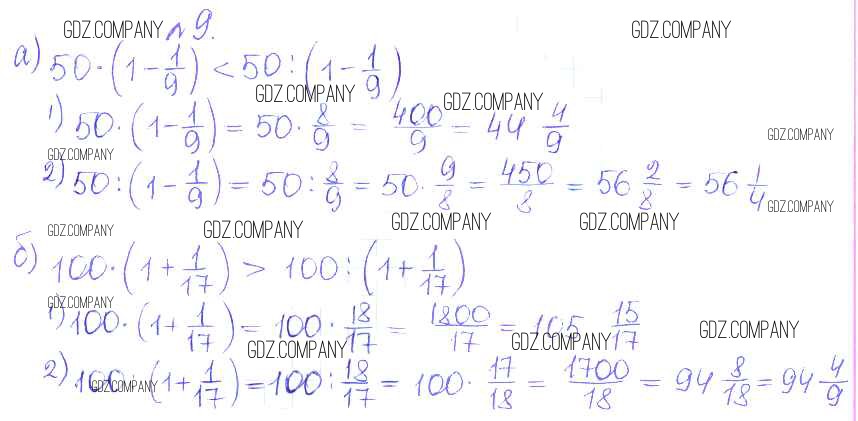 GDZ.COMPANY №9. GDZ.COMPANY
а) 50·(1-1/9) < 50:(1-1/9)
GDZ.COMPANY GDZ.COMPANY
1) 50·(1-1/9) = 50·8/9 = 400/9 = 44 4/9 GDZ.COMPANY
GDZ.COMPANY
2) 50:(1-1/9) = 50:8/9 = 50·9/8 = 450/8 = 56 2/8 = 56 1/4
GDZ.COMPANY
GDZ.COMPANY GDZ.COMPANY GDZ.COMPANY GDZ.COMPANY
б) 100·(1+1/17) > 100:(1+1/17)
GDZ.COMPANY
1) 100·(1+1/17) = 100·18/17 = 1800/17 = 105 15/17
GDZ.COMPANY GDZ.COMPANY GDZ.COMPANY
2) 100:(1+1/17) = 100:18/17 = 100·17/18 = 1700/18 = 94 8/18 = 94 4/9
GDZ.COMPANY